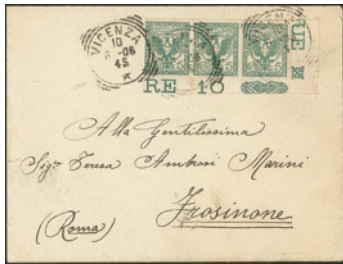 VICENZA
10
-06
45
UE
RE 10
Alla Gentilissima
Sig.ra Teresa Ambrosi Marini
Frosinone
(Roma)